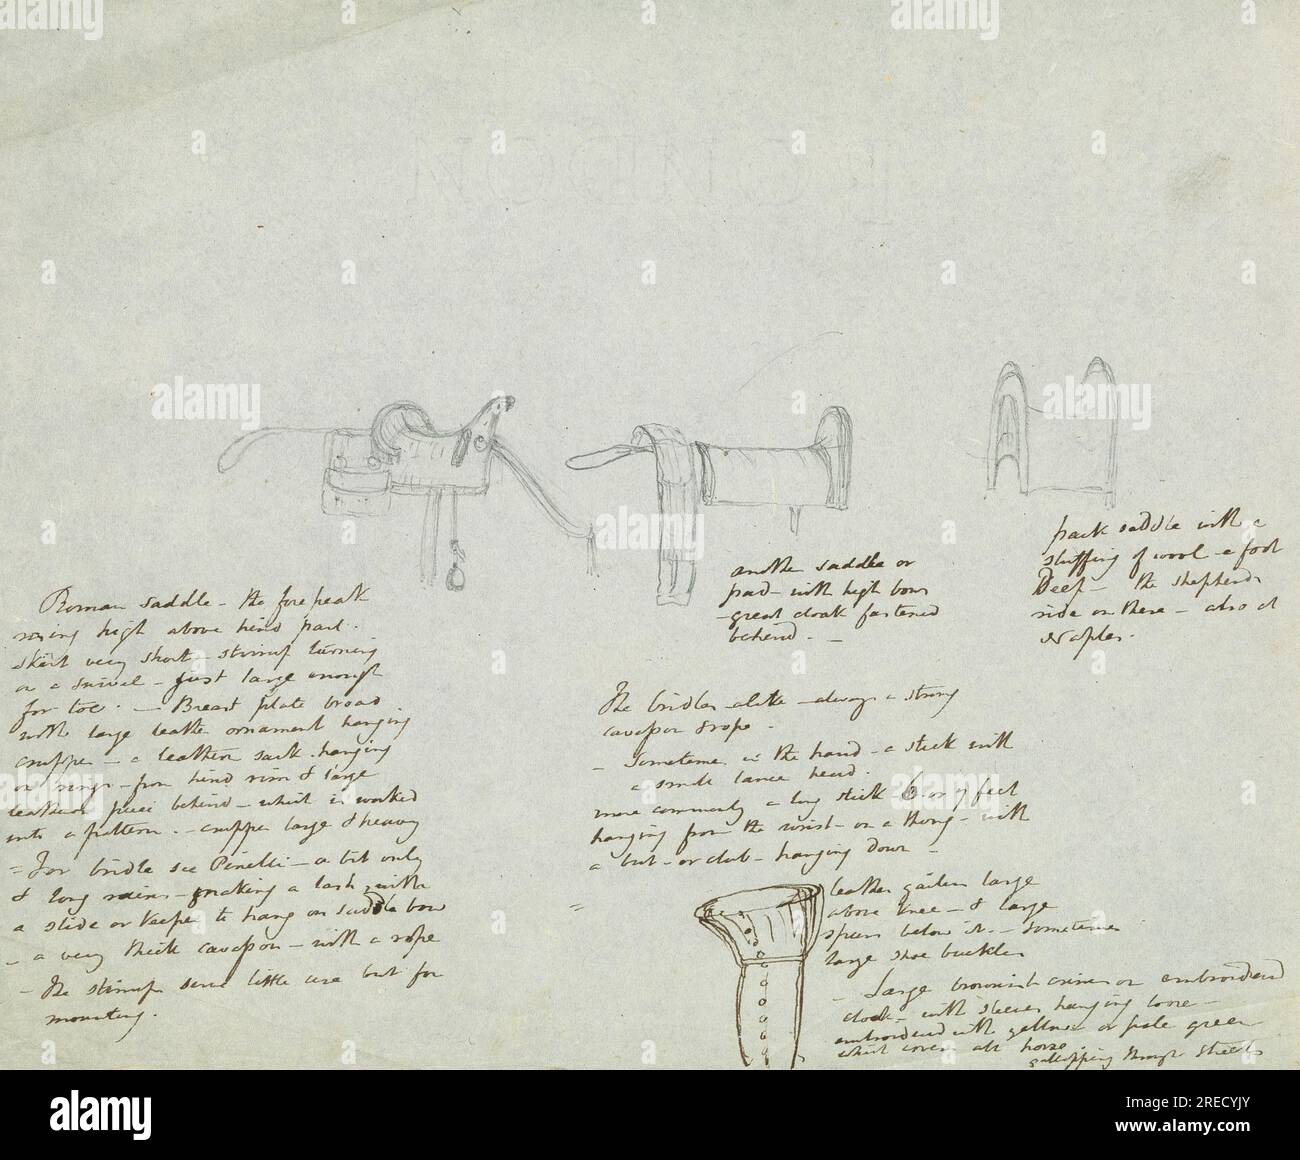 LONDON
pack saddle with a
stuffing of wool - a foot
Deep - the shepherds
ride on these - also at
Naples.
another saddle or
pad - with high bow
- great cloak fastened
behind. -
Roman saddle - the fore peak
rising high above hind part.
skirt very short - stirrup turning
on a swivel - just large enough
for toe. - Breast plate broad
with large leather ornament hanging
crupper - a leathern sack hanging
on rings - from hind rim & large
leathern piece behind - which is worked
into a pattern. - crupper large & heavy
= For bridle see Pinelli - a bit only
& long reins - making a lash with
a slide or keeper to hang on saddle bow
- a very thick cavesson - with a rope
- The stirrups serve little use but for
mounting.
The bridles alike - always a strong
cavesson & rope -
- Sometimes in the hand - a stick with
a small lance head.
more commonly a long stick 6 or 7 feet
hanging from the wrist - on a thong - with
a but - or club - hanging down -
=
leather gaiters large
above knee - & large
spurs below it. - sometimes
large shoe buckles
- Large brownish crimson embroidered
cloak - with sleeves hanging loose -
embroidered with yellow or pale green
which covers all horse.
galloping through streets
alamy
Image ID: 2RECYJY
www.alamy.com